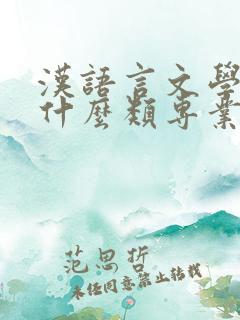 漢語言文學
什麼類專業
范思哲
未经同意禁止转载